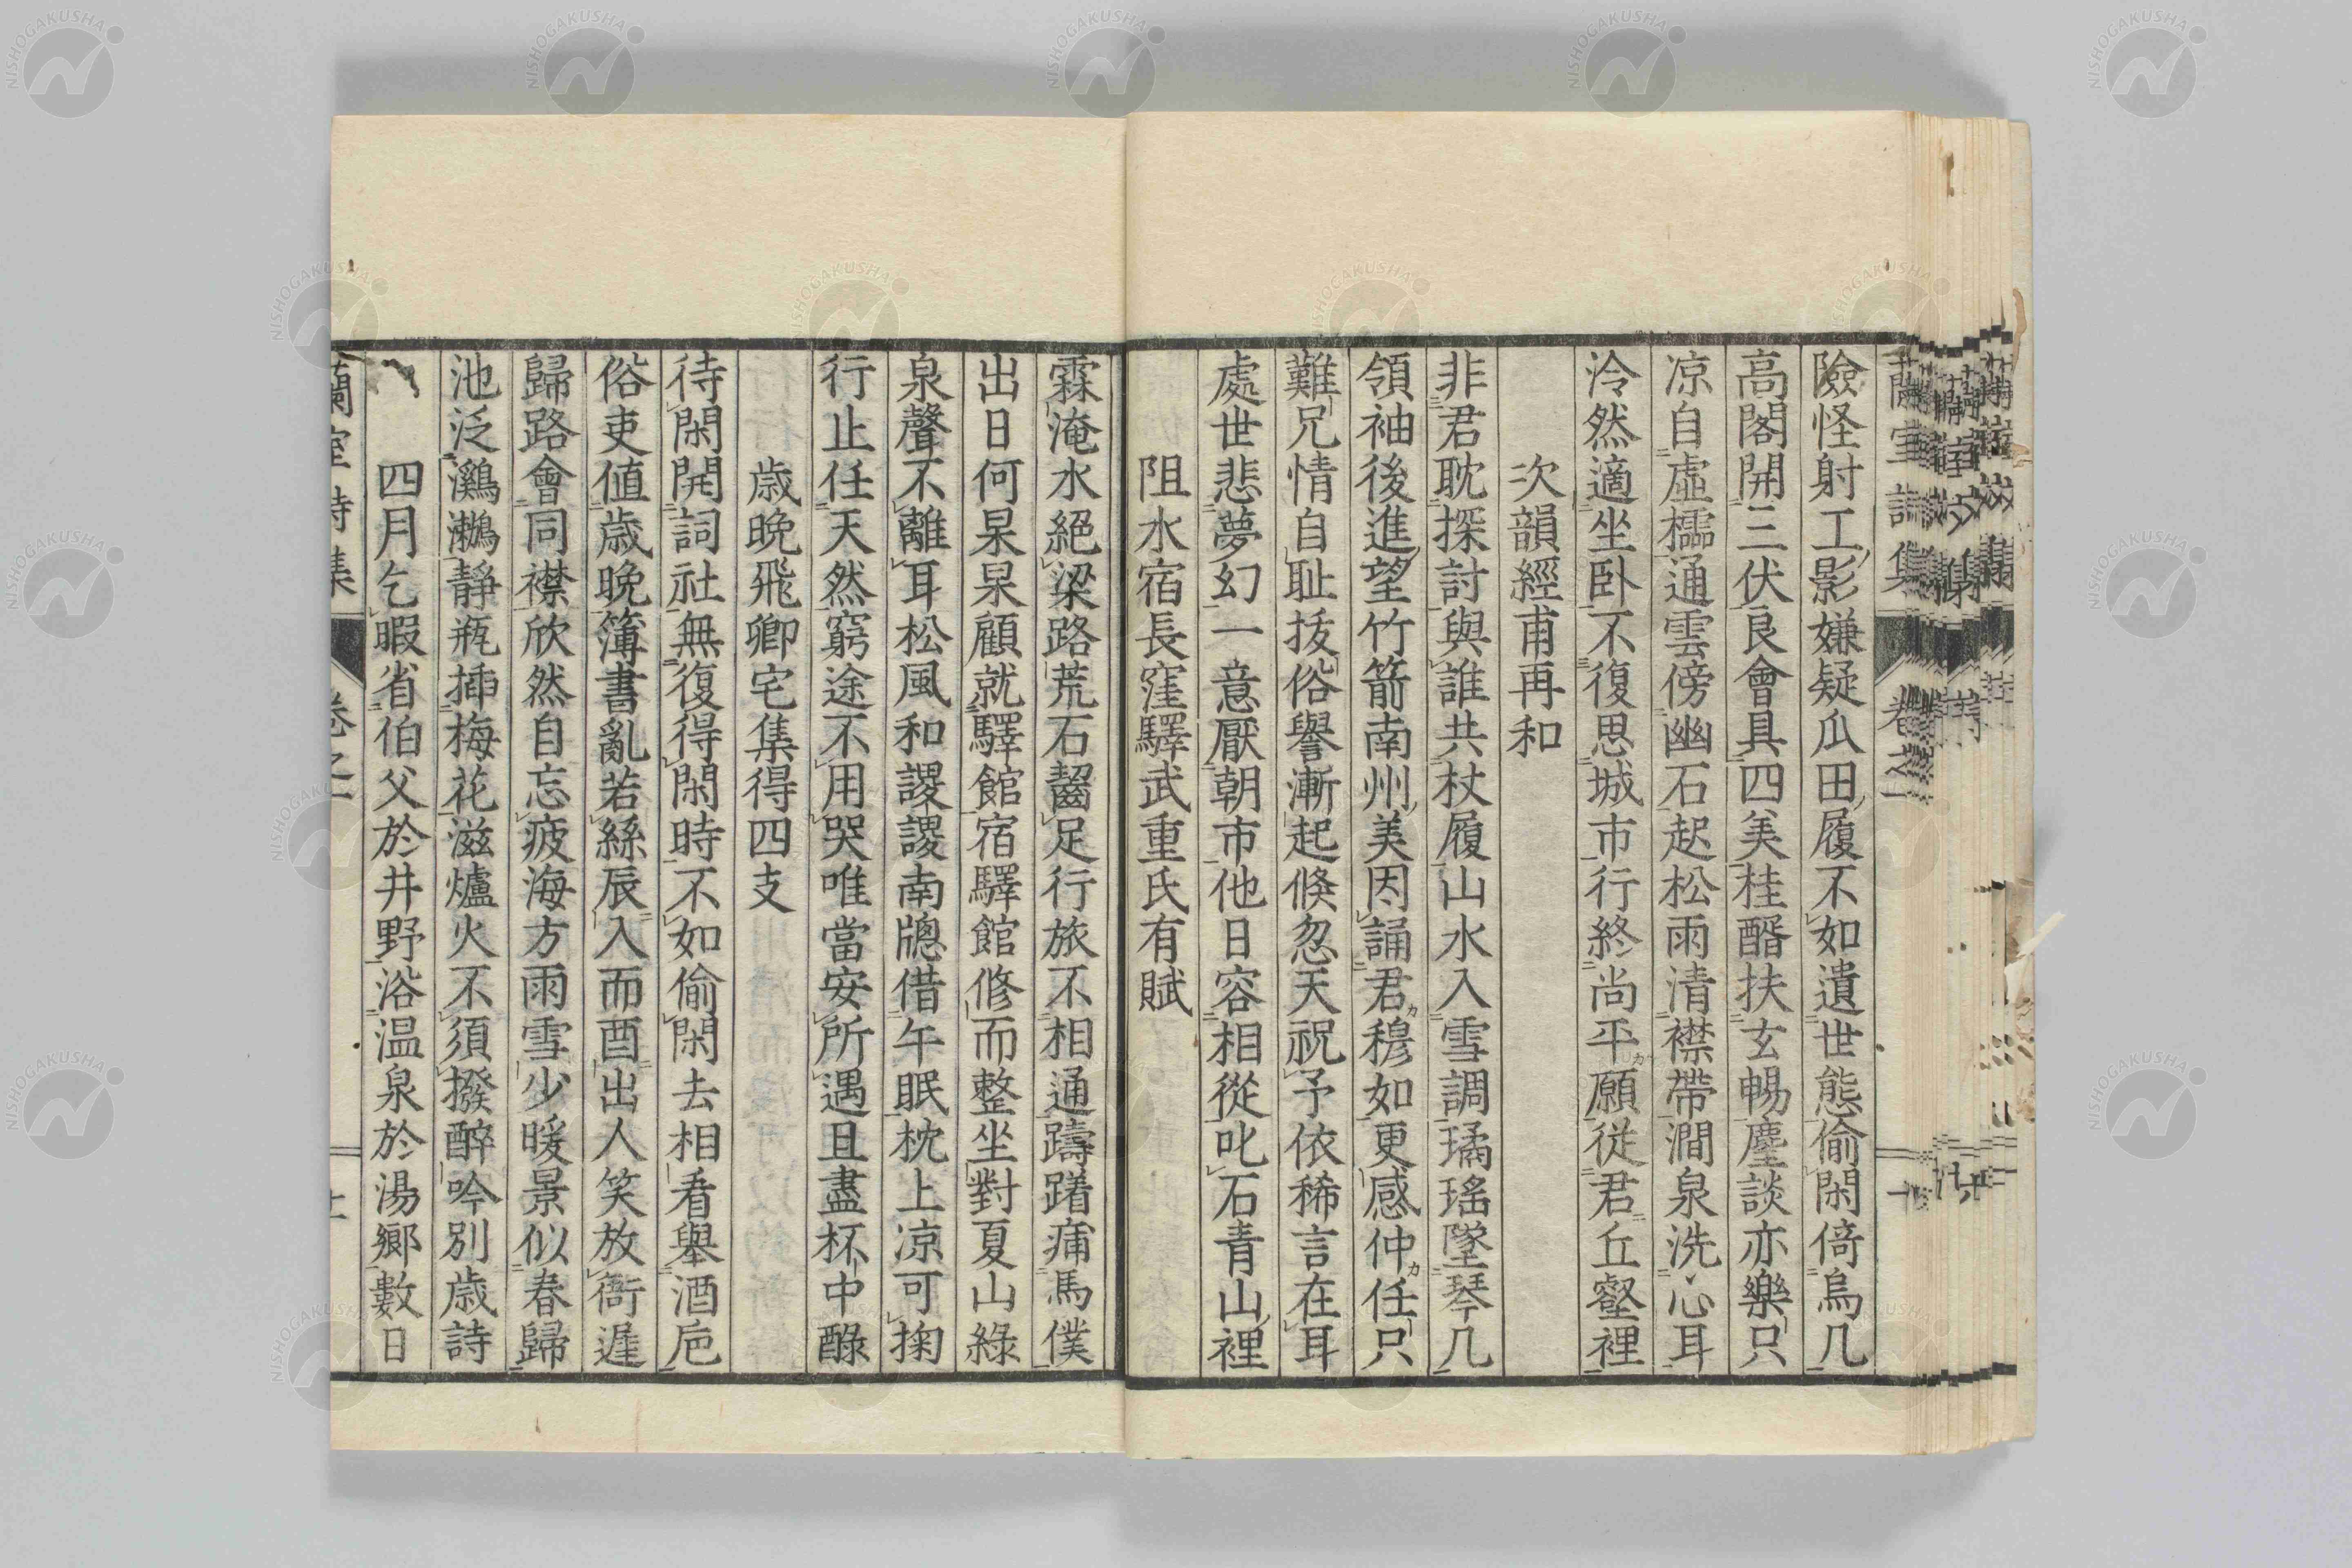 險怪射工影嫌疑瓜田履不如遺世態偷閑倚烏几
高閣開三伏良會具四美桂醑扶玄暢塵談亦樂只
凉自虛櫺通雲傍幽石起松雨清襟帶澗泉洗心耳
泠然適坐卧不復思城市行終尚平願從君丘壑裡
次韻經甫再和
非君耽探討與誰共杖履山水入雪調璚瑤墜琴几
領袖後進望竹箭南州美因誦君穆如更感仲任只
難兄情自恥拔俗譽漸起倏忽天祝予依稀言在耳
處世悲夢幻一意厭朝市他日容相從叱石青山裡
阻水宿長窪驛武重氏有賦
霖淹水絕梁路荒石齧足行旅不相通躊躇痡馬僕
出日何杲杲顧就驛館宿驛館修而整坐對夏山綠
泉聲不離耳松風和謖謖南牕借午眠枕上凉可掬
行止任天然窮途不用哭唯當安所遇且盡杯中醁
歲晚飛卿宅集得四支
待閑開詞社無復得閑時不如偷閑去相看舉酒卮
俗吏值歲晚簿書亂若絲辰入而酉出人笑放衙遲
歸路會同襟欣然自忘疲海方雨雪少暖景似春歸
池泛㶉鶒靜瓶插梅花滋爐火不須撥醉吟別歲詩
四月乞暇省伯父於井野浴温泉於湯鄉數日
蘭室詩集 卷之一
NISHOGAKUSHA